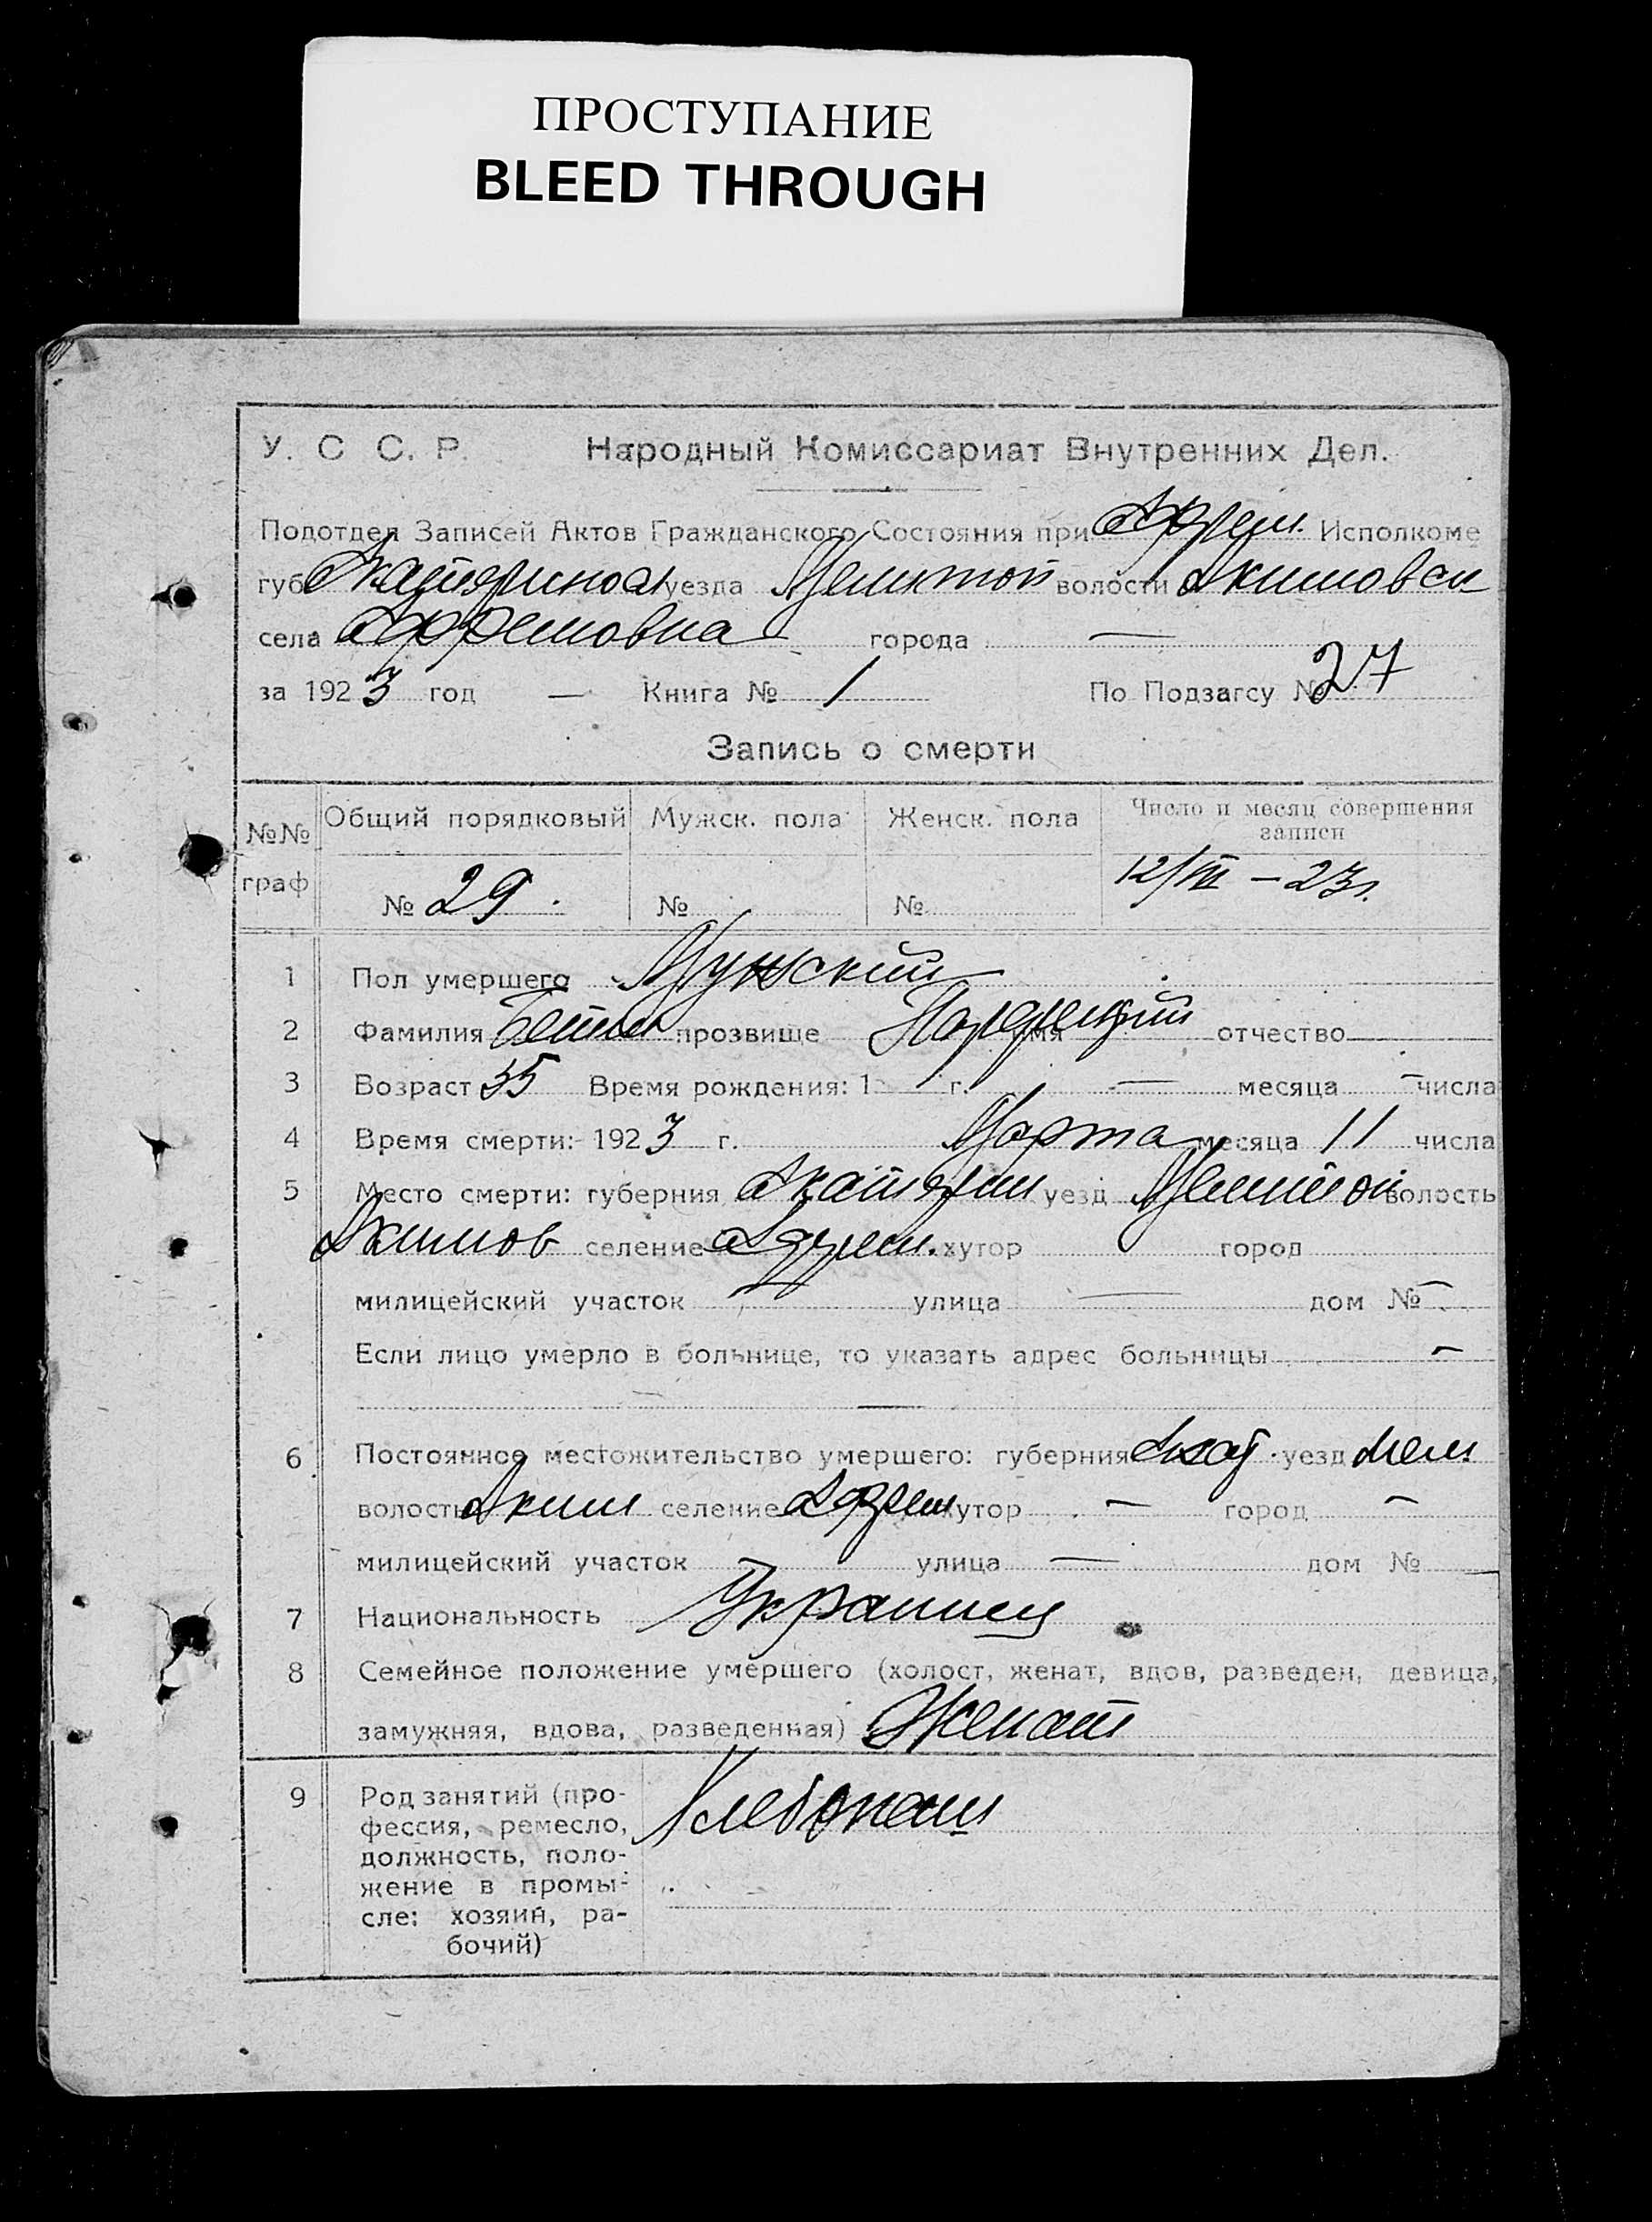 ПРОСТУПАНИЕ
BLEED THROUGH
У. С С. Р. Народный Комиссариат Внутренних Дел.
Подотдел Записей Актов Гражданского Состояния при Ефрем. Исполкоме
губ уезда Мелитоп волости Акимовск
села Ефремовка города —
за 1923 год — Книга № 1 По Подзагсу № 27
Запись о смерти
№№ граф Общий порядковый Мужск. пола Женск. пола Число и месяц совершения записи
№ 29. № № 12/III – 23г.
1 Пол умершего Мужский
2 Фамилия прозвище имя отчество
3 Возраст 35 Время рождения: 1 г. — месяца — числа
4 Время смерти:- 1923 г. Марта месяца 11 числа
5 Место смерти: губерния Екатерин уезд Мелитоп волость
Акимов селение Ефрем. хутор город
милицейский участок — улица — дом № —
Если лицо умерло в больнице, то указать адрес больницы —
—
6 Постоянное местожительство умершего: губерния Екат. уезд Мел
волость Аким селение Ефрем хутор — город —
милицейский участок — улица — дом № —
7 Национальность Украинец
8 Семейное положение умершего (холост, женат, вдов, разведен, девица,
замужняя, вдова, разведенная) Женат
9 Род занятий (про- Хлебопаш
фессия, ремесло,
должность, поло-
жение в промы-
сле: хозяин, ра-
бочий)